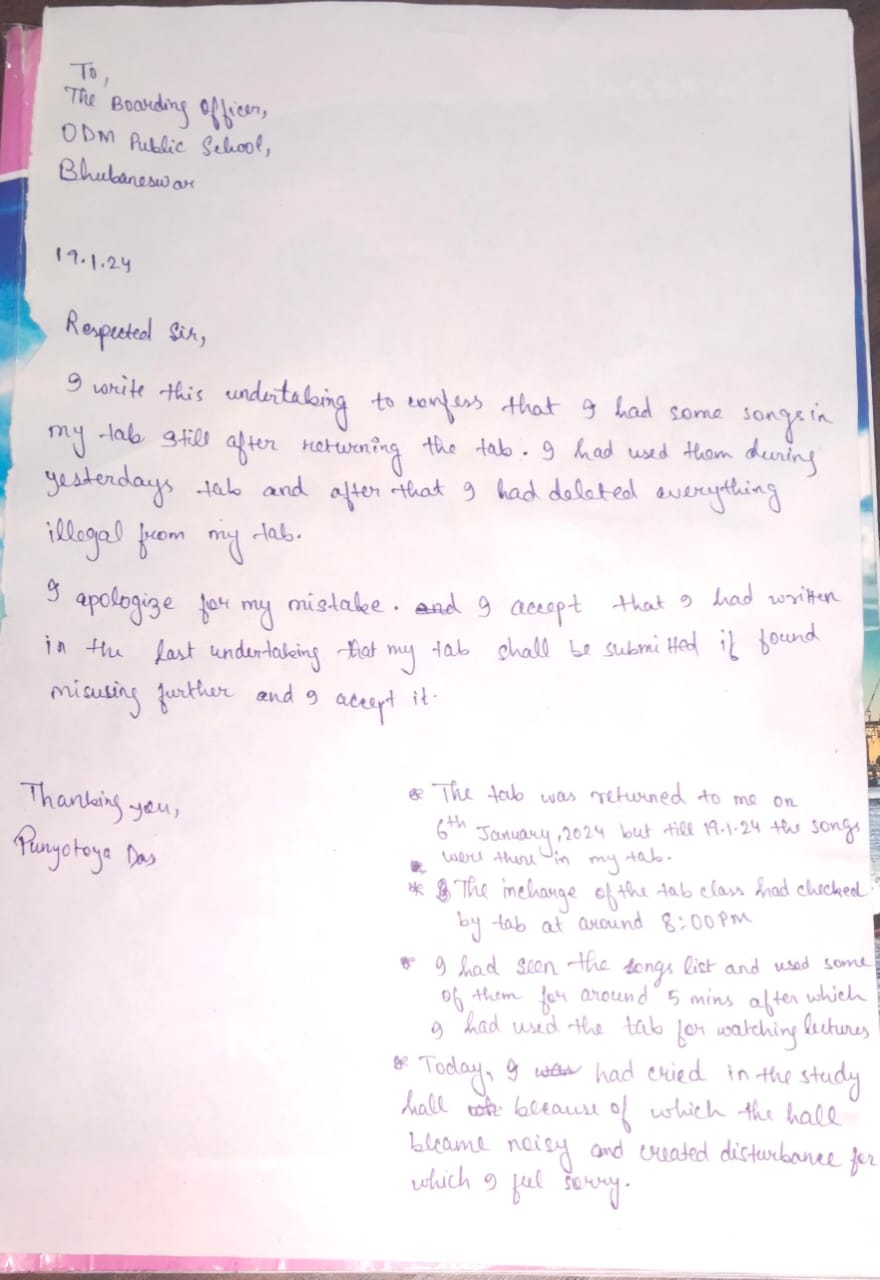 To,
The Boarding Officer,
ODM Public School,
Bhubaneswar
19.1.24
Respected Sir,
I write this undertaking to confess that I had some songs in
my tab still after returning the tab. I had used them during
yesterdays tab and after that I had deleted everything
illegal from my tab.
I apologize for my mistake. and I accept that I had written
in the last undertaking that my tab shall be submitted if found
misusing further and I accept it.
Thanking you,
Punyotoya Das
* The tab was returned to me on
6th January, 2024 but till 19.1.24 the songs
were there in my tab.
* The incharge of the tab class had checked
by tab at around 8:00 PM
* I had seen the songs list and used some
of them for around 5 mins after which
I had used the tab for watching lectures
* Today, I was had cried in the study
hall because of which the hall
became noisy and created disturbance for
which I feel sorry.